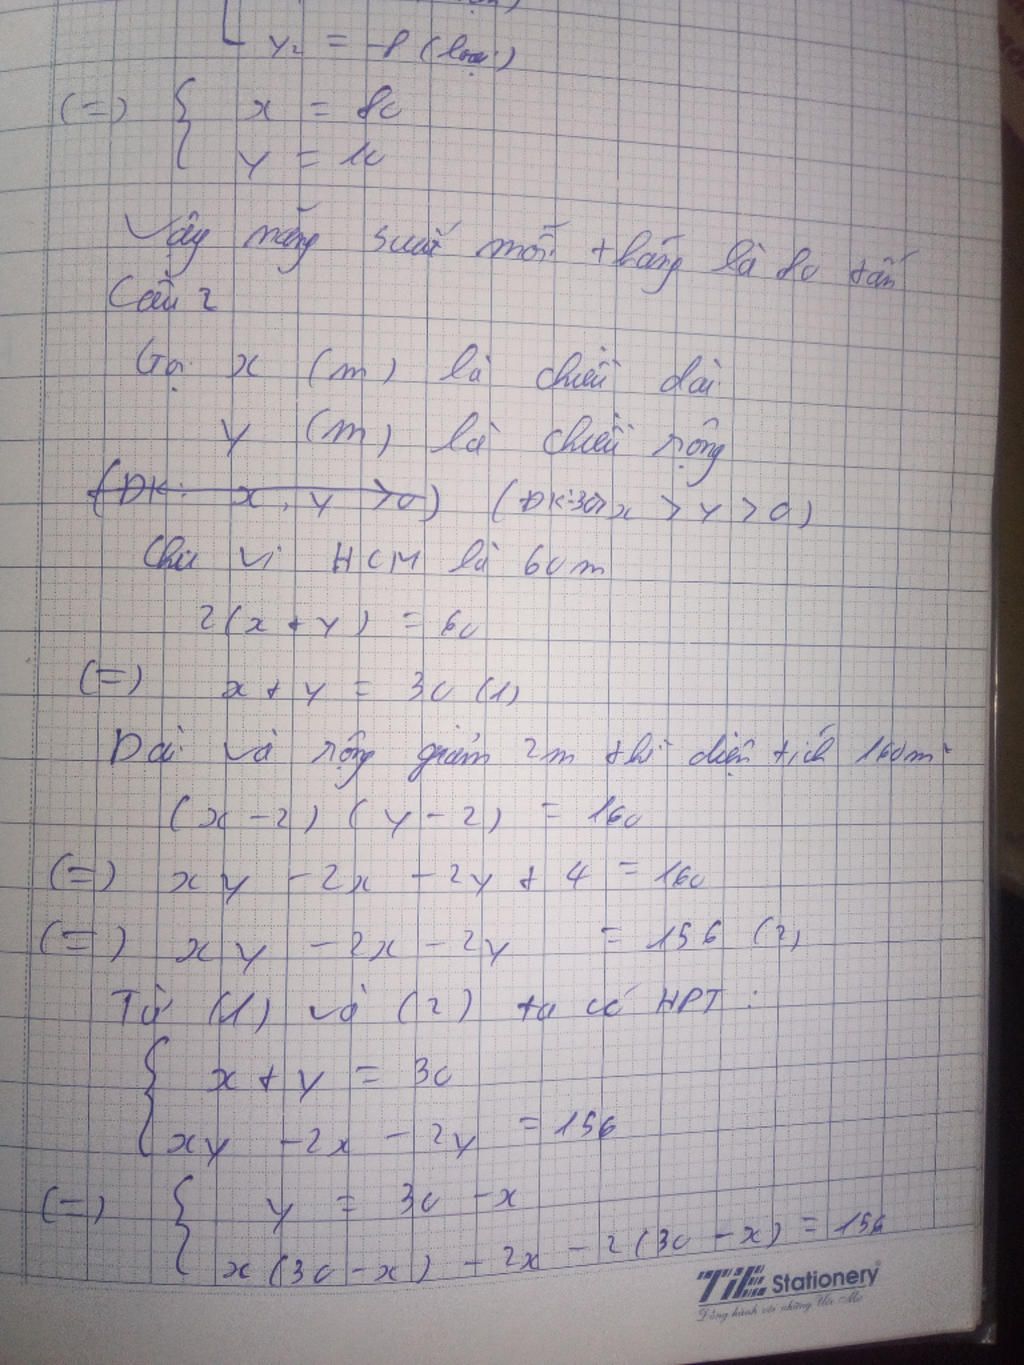 y₂ = -8 (loại)
(=) { x = 80
y = 10
Vậy năng suất mỗi tháng là 80 tấn
Câu 2
Gọi x (m) là chiều dài
y (m) là chiều rộng
(ĐK: x, y >0) (ĐK:30> x > y > 0)
Chu vi HCN là 60m
2(x + y) = 60
(=) x + y = 30 (1)
Dài và rộng giảm 2m thì diện tích 160m²
(x - 2) (y - 2) = 160
(=) xy - 2x - 2y + 4 = 160
(=) xy - 2x - 2y = 156 (2)
Từ (1) và (2) ta có HPT :
{ x + y = 30
xy - 2x - 2y = 156
(=) { y = 30 - x
x(30 - x) - 2x - 2(30 - x) = 156
TiE Stationery
Đồng hành với những Ước Mơ